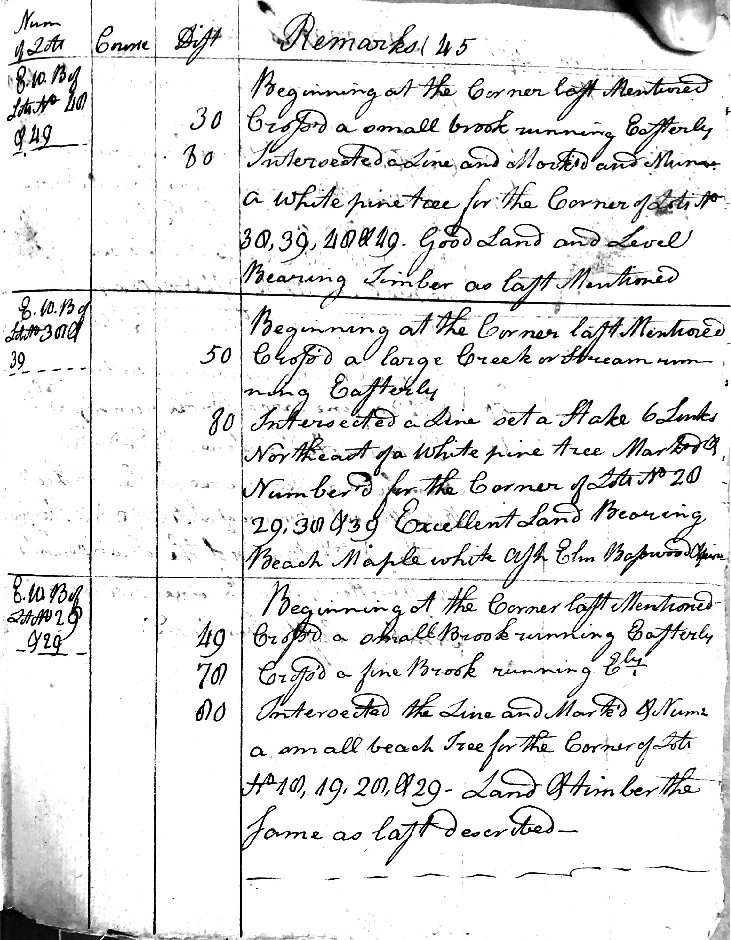 Num of Lots Course Dist Remarks (45
E. W. B of Lots No 48 & 49
Beginning at the Corner last Mentioned
30 Cross'd a small brook running Easterly
80 Intersected a Line and Mark'd and Num=
a white pine tree for the Corner of Lots No
38, 39, 48 & 49. Good Land and Level
Bearing Timber as last Mentioned
E. W. B of Lots No 38 & 39
Beginning at the Corner last Mentioned
50 Cross'd a large Creek or Stream run
ning Easterly
80 Intersected a Line set a Stake 6 Links
Northeast of a White pine tree Mark'd &
Number'd for the Corner of Lots No 28
29, 38 & 39 Excellent Land Bearing
Beach Maple white Ash Elm Basswood & pine
E. W. B of Lots No 28 & 29
Beginning at the Corner last Mentioned
49 Cross'd a small Brook running Easterly
78 Cross'd a fine Brook running Ely
80 Intersected the Line and Mark'd & Num=
a small beach Tree for the Corner of Lots
No 18, 19, 28, & 29 - Land & timber the
Same as last described -